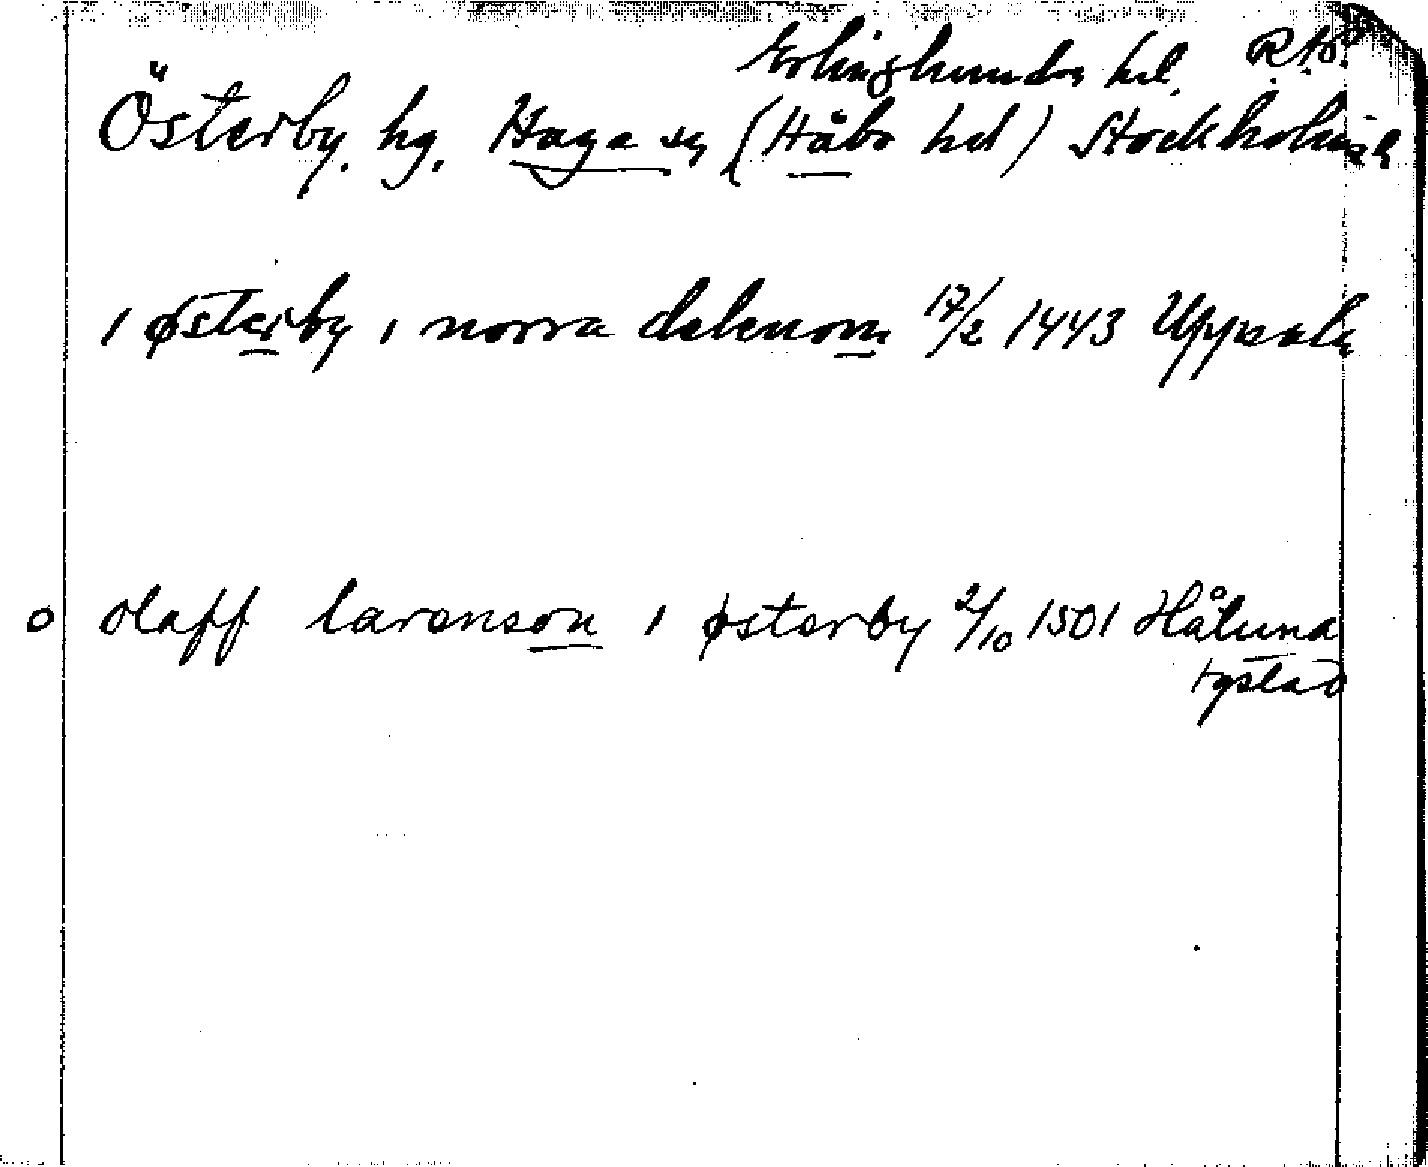 Erlinghundra hd. R.A.
Österby, hg. Haga sn (Håbo hd) Stockholms l
i østerby i norra dalenom 17/2 1443 Uppsala
o olaff larenson i østerby 2/10 1501 Håtuna
tgstad